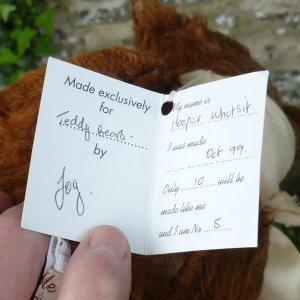 Made exclusively
for
Teddy bears
by
Joy.
My name is
Hooper Whotsit
I was made
Oct 99.
Only 10 will be
made like me
and I am No 5
Me